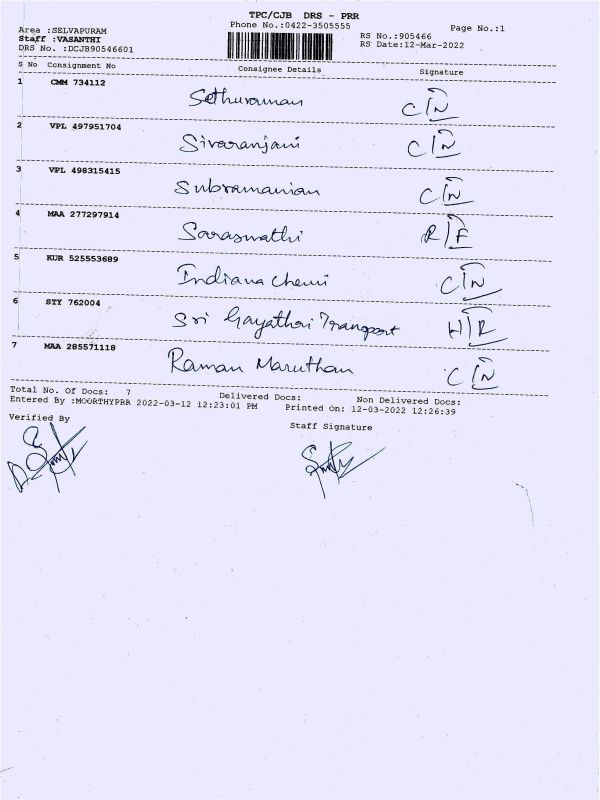 TPC/CJB DRS - PRR
Phone No.:0422-3505555
Page No.:1
Area :SELVAPURAM
Staff :VASANTHI
DRS No. :DCJB90546601
RS No.:905466
RS Date:12-Mar-2022
S No Consignment No Consignee Details Signature
1 CMM 734112 Sethuraman C/N
2 VPL 497951704 Sivaranjani C/N
3 VPL 498315415 Subramanian C/N
4 MAA 277297914 Saraswathi R/F
5 KUR 525553689 Indiana Chemi C/N
6 STY 762004 Sri Gayathri Transport H/R
7 MAA 285571118 Raman Maruthan C/N
Total No. Of Docs: 7 Delivered Docs: Non Delivered Docs:
Entered By :MOORTHYPRR 2022-03-12 12:23:01 PM Printed On: 12-03-2022 12:26:39
Verified By Staff Signature